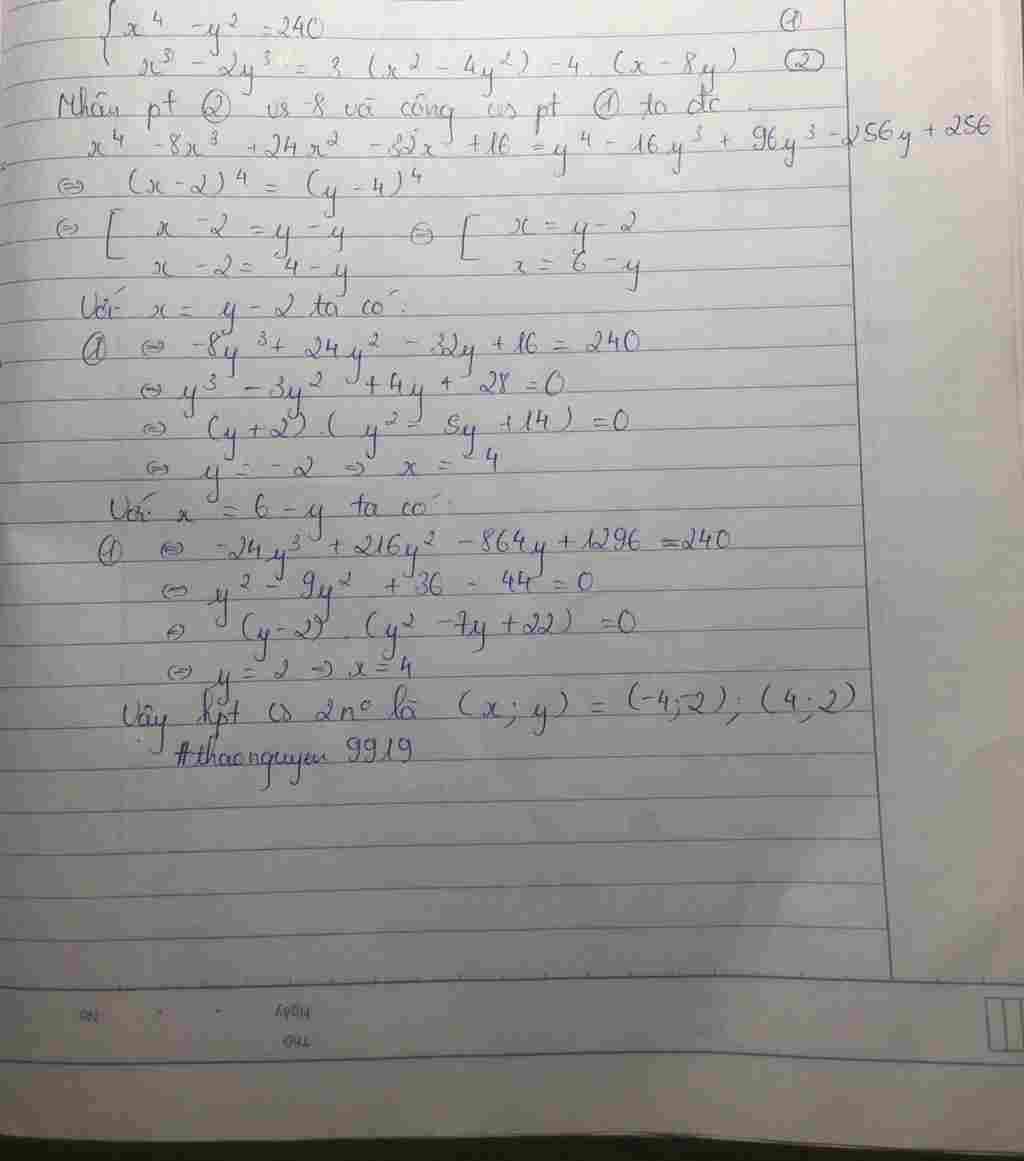 { x⁴ - y² = 240 ①
x³ - 2y³ = 3 (x² - 4y²) - 4. (x - 8y) ②
Nhân pt ② vs -8 và cộng vs pt ① ta đc
x⁴ - 8x³ + 24x² - 32x + 16 = y⁴ - 16y³ + 96y³ - 256y + 256
⇔ (x - 2)⁴ = (y - 4)⁴
⇔ [ x - 2 = y - y ⇔ [ x = y - 2
x - 2 = 4 - y x = 6 - y
Với x = y - 2 ta có:
① ⇔ -8y³ + 24y² - 32y + 16 = 240
⇔ y³ - 3y² + 4y + 28 = 0
⇔ (y + 2).(y² - 5y + 14) = 0
⇔ y = -2 ⇒ x = -4
Với x = 6 - y ta có:
① ⇔ -24y³ + 216y² - 864y + 1296 = 240
⇔ y² - 9y² + 36 - 44 = 0
⇔ (y - 2).(y² - 7y + 22) = 0
⇔ y = 2 ⇒ x = 4
Vậy hpt cs 2n⁰ là (x; y) = (-4; -2); (4; 2)
#thaonguyen 9919
No Ngày
Thứ